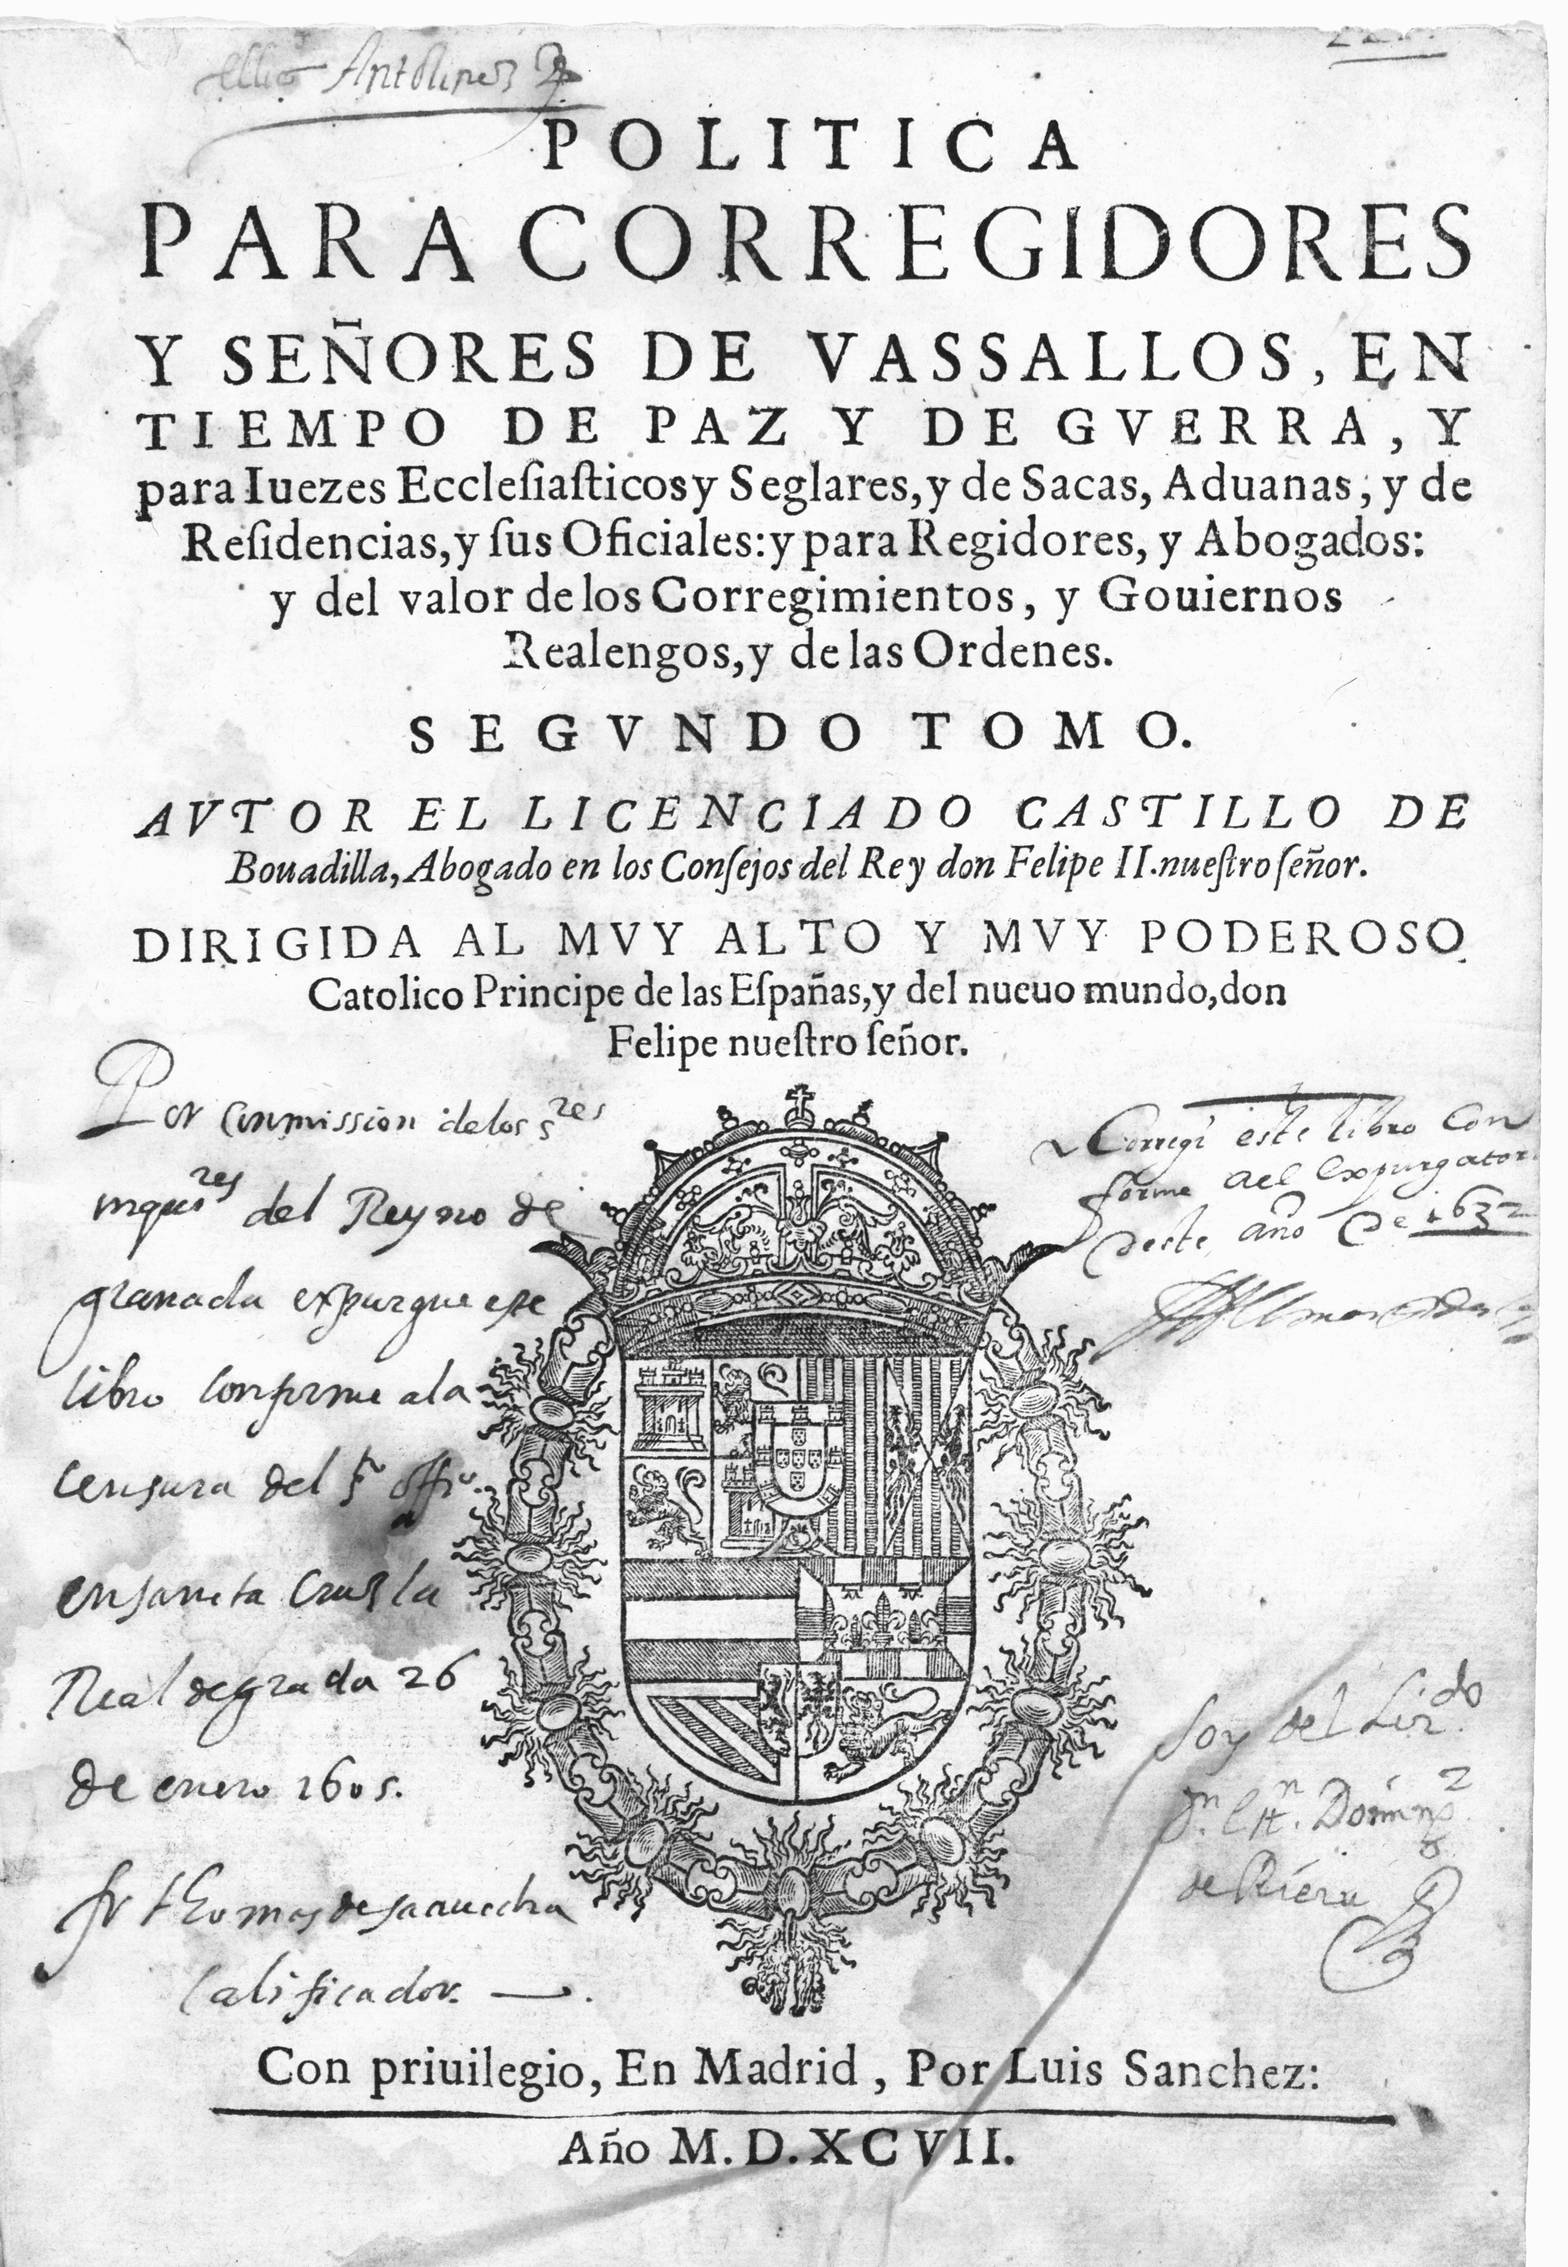 Antolinez
POLITICA
PARA CORREGIDORES
Y SEÑORES DE VASSALLOS, EN
TIEMPO DE PAZ Y DE GVERRA, Y
para Iuezes Eccleſiaſticos y Seglares, y de Sacas, Aduanas, y de
Reſidencias, y ſus Oficiales: y para Regidores, y Abogados:
y del valor de los Corregimientos, y Gouiernos
Realengos, y de las Ordenes.
SEGVNDO TOMO.
AVTOR EL LICENCIADO CASTILLO DE
Bouadilla, Abogado en los Conſejos del Rey don Felipe II. nueſtro ſeñor.
DIRIGIDA AL MVY ALTO Y MVY PODEROSO
Catolico Principe de las Eſpañas, y del nueuo mundo, don
Felipe nueſtro ſeñor.
Por Commission de los sres
inquires del Reyno de
granada expurgue este
libro conforme a la
censura del st offio
en sancta Cruz la
Real de grada 26
de enero 1605.
fr thomas de
Calificador.
Corregi este libro Con
forme al expurgator
deste año de 1632
Soy del Licdo
Dn Domingz
de Riera
Con priuilegio, En Madrid, Por Luis Sanchez:
Año M.D.XCVII.